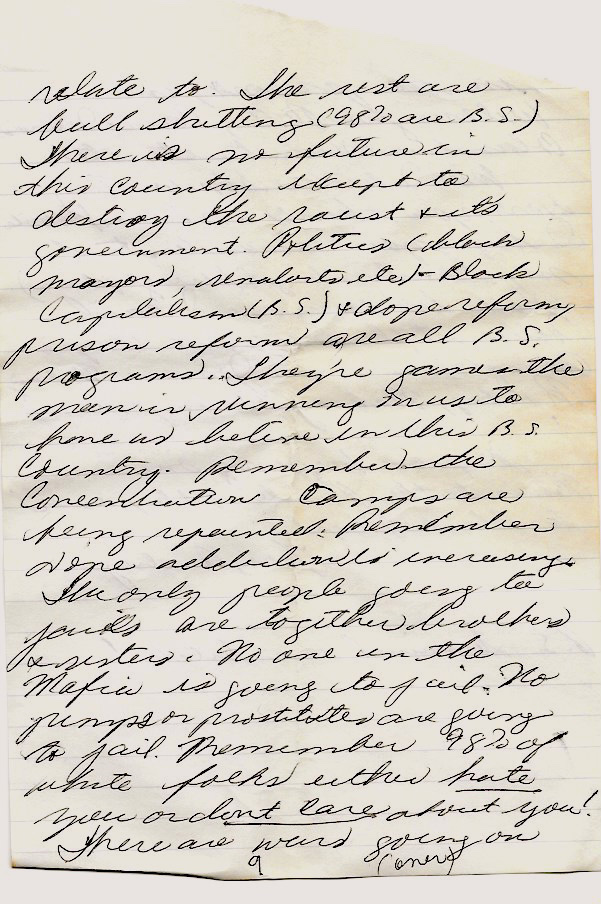 relate to. The rest are
bull shitting (98% are B.S.)
There is no future in
this country except to
destroy the racist & its
government. Politics (black
mayors, senators etc) - Black
Capitalism (B.S.) & dope reform,
prison reform are all B.S.
programs. They're games the
man is running on us to
have us believe in this B.S.
Country. Remember the
Concentration Camps are
being repainted. Remember
dope addiction is increasing.
The only people going to
jails are together brothers
& sisters. No one in the
Mafia is going to jail. No
pimps or prostitutes are going
to jail. Remember 98% of
white folks either hate
you or dont care about you!
There are wars going on
9 (over)